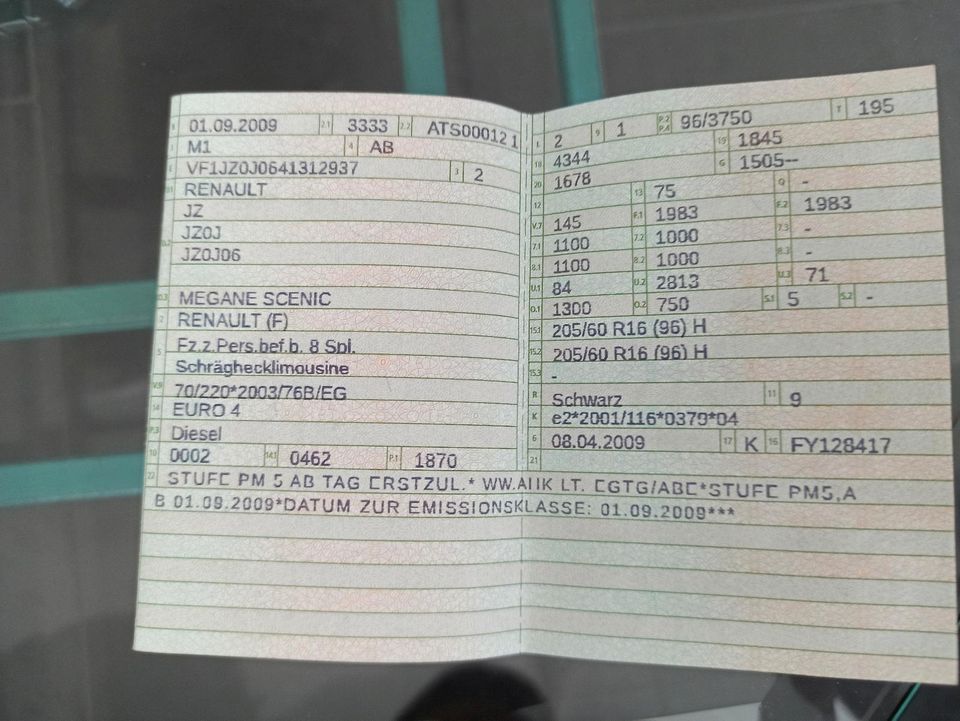 01.09.2009 2.1 3333 2.2 ATS000121
M1 4 AB
VF1JZ0J0641312937 3 2
RENAULT
JZ
JZ0J
JZ0J06
D.3 MEGANE SCENIC
2 RENAULT (F)
5 Fz.z.Pers.bef.b. 8 Spl.
Schräghecklimousine
V.9 70/220*2003/76B/EG
14 EURO 4
P.3 Diesel
10 0002 14.1 0462 P.1 1870
L 2 9 1 P.2 P.4 96/3750 T 195
18 4344 19 1845
20 1678 G 1505--
12 13 75 Q -
V.7 145 F.1 1983 F.2 1983
7.1 1100 7.2 1000 7.3 -
8.1 1100 8.2 1000 8.3 -
U.1 84 U.2 2813 U.3 71
O.1 1300 O.2 750 S.1 5 S.2 -
15.1 205/60 R16 (96) H
15.2 205/60 R16 (96) H
15.3 -
R Schwarz 11 9
K e2*2001/116*0379*04
6 08.04.2009 17 K 16 FY128417
21
22 STUFE PM 5 AB TAG ERSTZUL.* WW.AHK LT. EGTG/ABE*STUFE PM5,A
B 01.09.2009*DATUM ZUR EMISSIONSKLASSE: 01.09.2009***